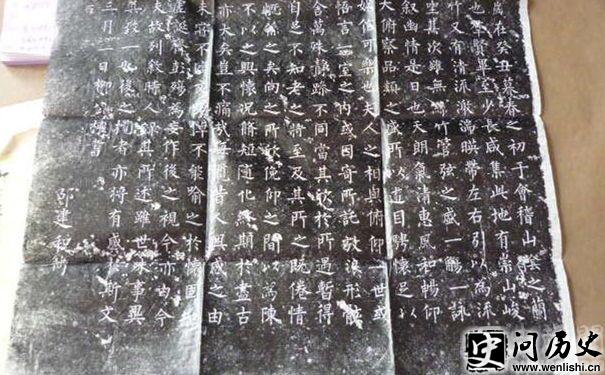 歲在癸丑暮春之初于會稽山陰之蘭
也羣賢畢至少長咸集此地有崇山峻
竹又有清流激湍暎帶左右引以為流
坐其次雖無絲竹管弦之盛一觴一詠
叙幽情是日也天朗氣清惠風和暢仰
大俯察品類之盛所以遊目騁懷足以
娛信可樂也夫人之相與俯仰一世或
悟言一室之内或因寄所託放浪形骸
舍萬殊静躁不同當其欣於所遇暫得
自足不知老之將至及其所之既倦情
慨係之矣向之所欣俛仰之間以為陳
不以之興懷況脩短随化終期於盡古
亦大矣豈不痛哉每覽昔人興感之由
未嘗不臨文嗟悼不能喻之於懷固知
虛誕齊彭殤為妄作後之視今亦由今
夫故列叙時人録其所述雖世殊事異
其致一也後之攬者亦將有感於斯文
三月一日柳公權書
邵建和
问历史
www.wenlishi.cn